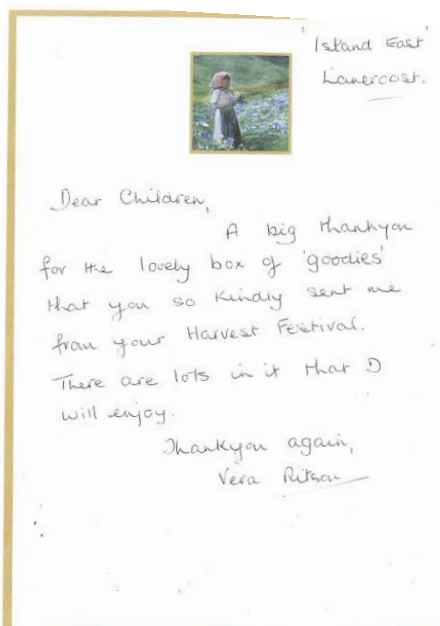 Island East
Lanercost.
Dear Children,
A big thankyou
for the lovely box of 'goodies'
that you so kindly sent me
from your Harvest Festival.
There are lots in it that I
will enjoy.
Thankyou again,
Vera Ritson